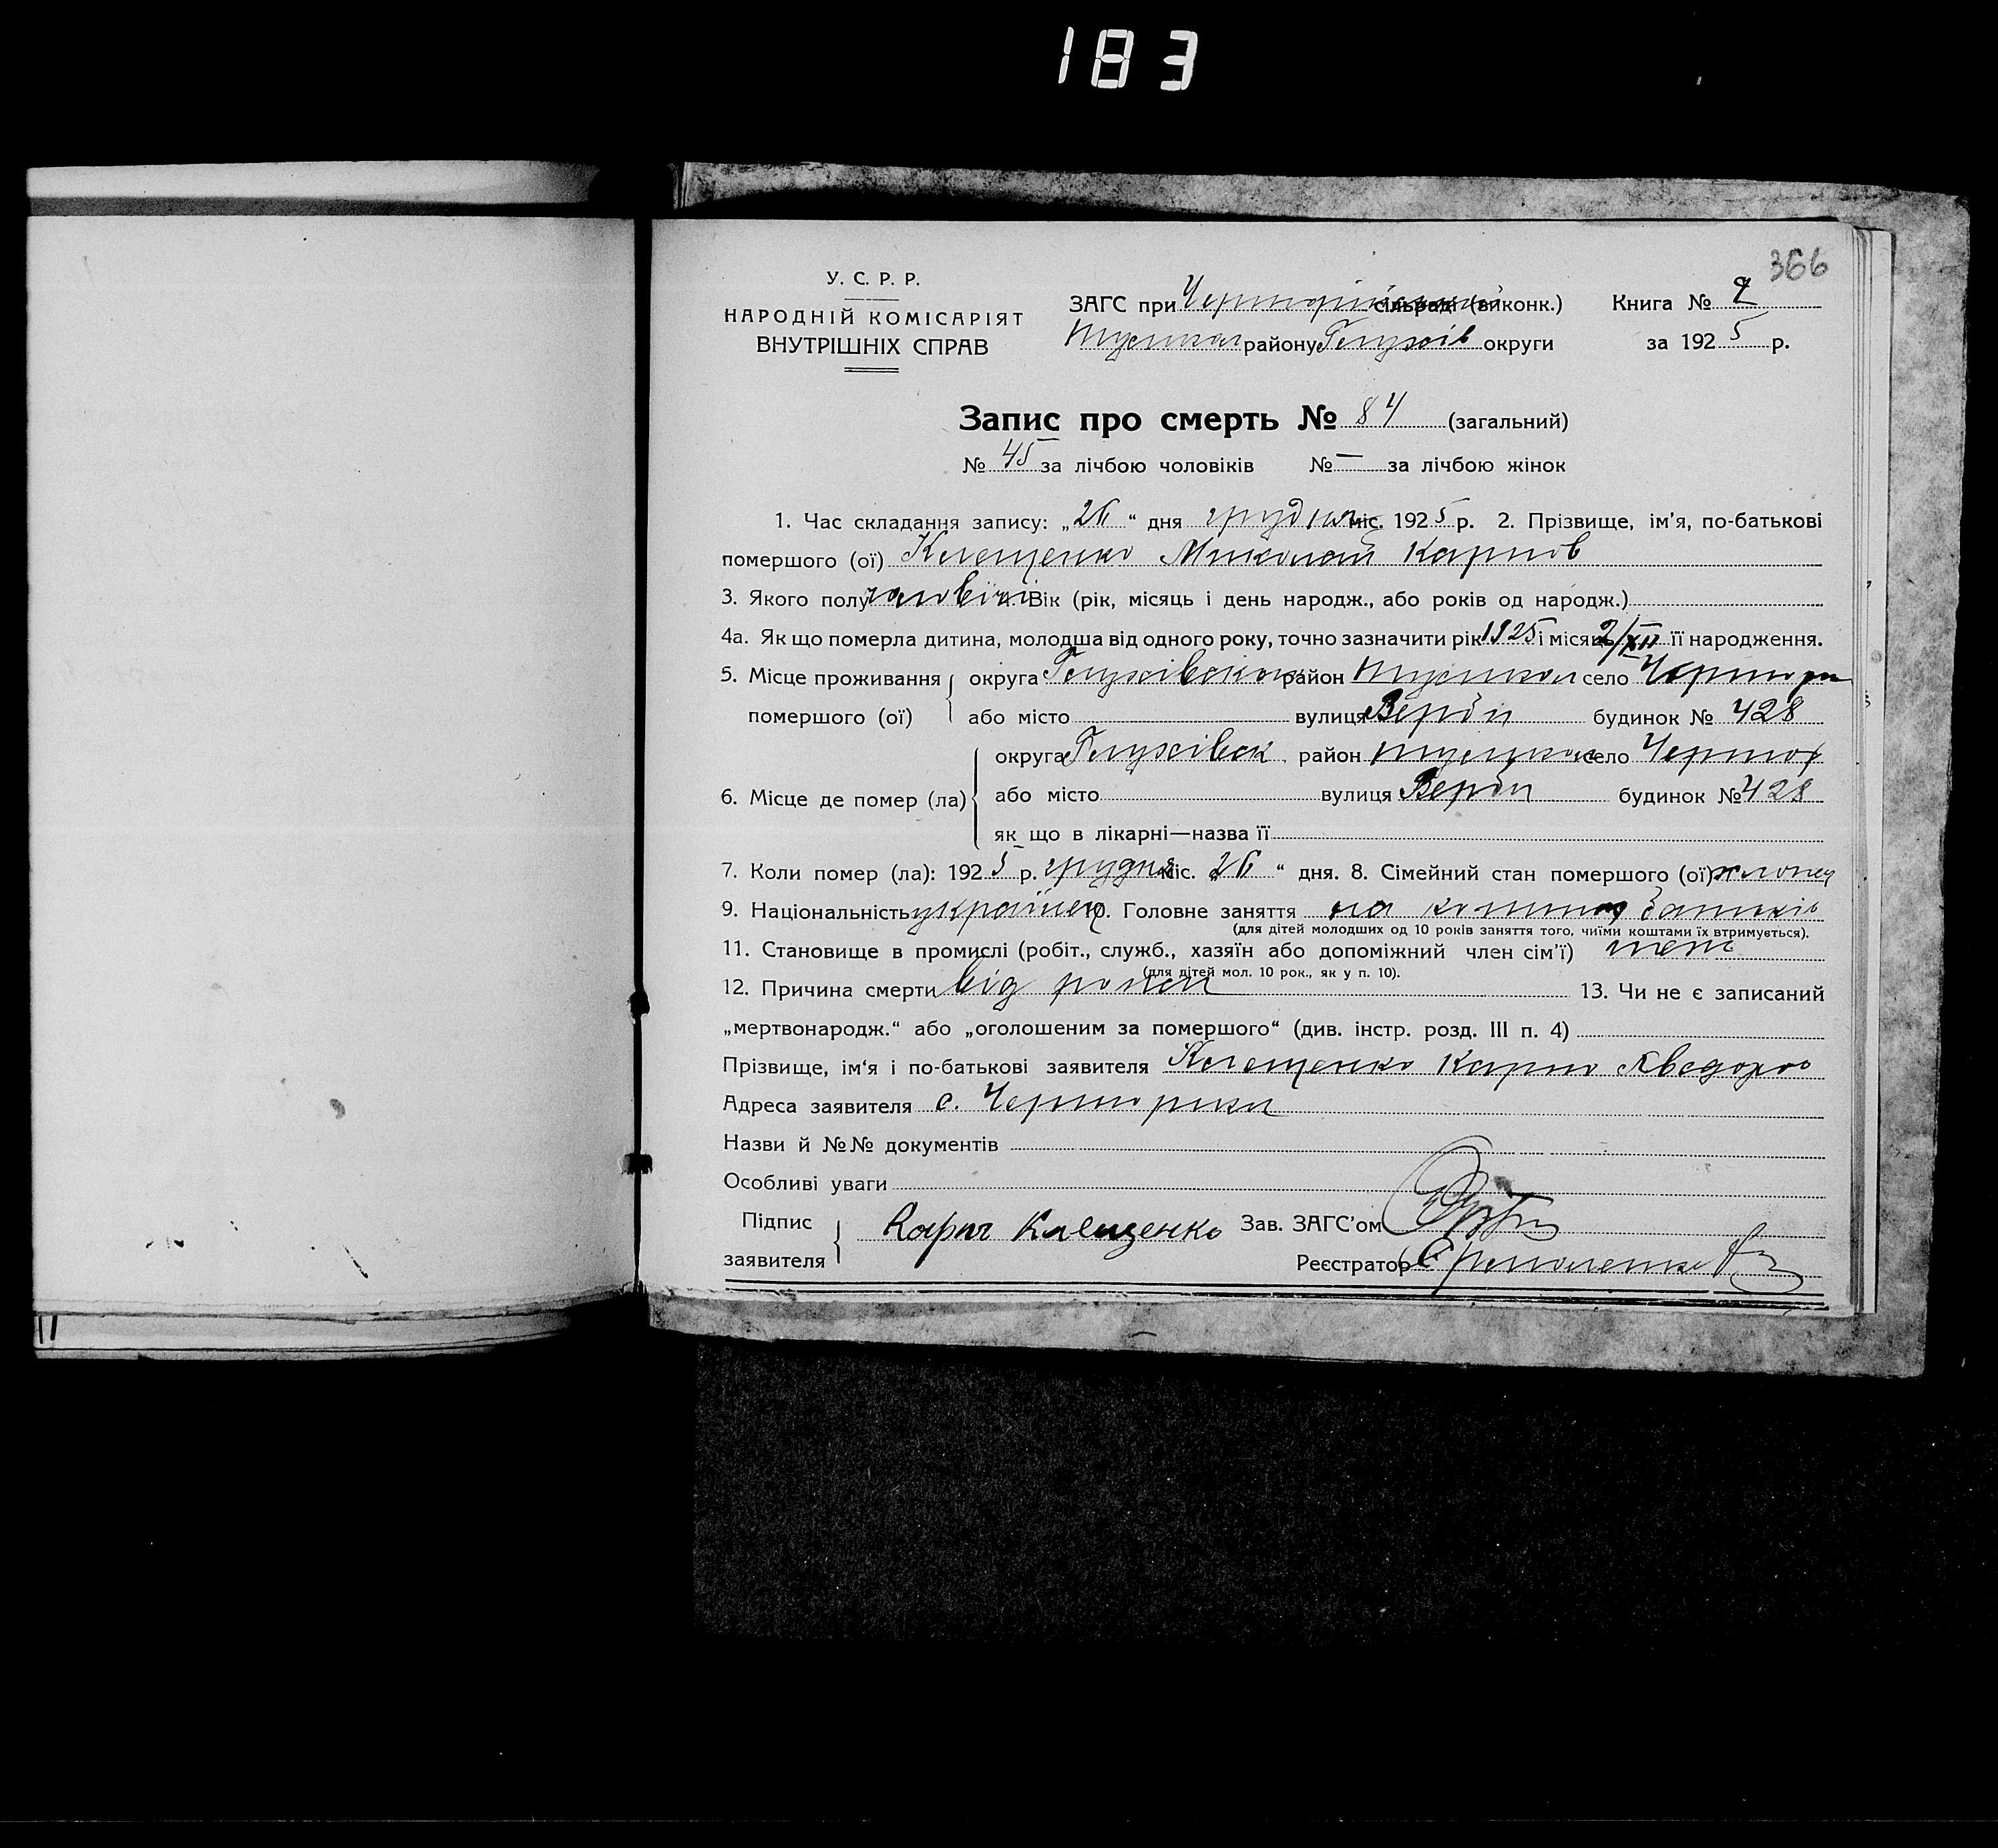 183
366
У. С. Р. Р.
НАРОДНІЙ КОМІСАРІЯТ
ВНУТРІШНІХ СПРАВ
ЗАГС при сільраді (виконк.) Книга №
району Глухів округи за 1925 р.
Запис про смерть № 84 (загальний)
№ 45 за лічбою чоловіків № — за лічбою жінок
1. Час складання запису: „26“ дня грудня міс. 1925 р. 2. Прізвище, ім'я, по-батькові
помершого (ої) Клещенко Миколай Карпов
3. Якого полу чоловічі Вік (рік, місяць і день народж., або років од народж.)
4а. Як що померла дитина, молодша від одного року, точно зазначити рік 1925 і місяць 2/XII її народження.
5. Місце проживання округа Глухівська район село
помершого (ої) або місто вулиця Верби будинок № 428
округа Глухівск район село
6. Місце де помер (ла) або місто вулиця Верби будинок № 428
як що в лікарні—назва її
7. Коли помер (ла): 1925 р. грудня міс. „26“ дня. 8. Сімейний стан помершого (ої) хлопец
9. Національність українец 10. Головне заняття на
(для дітей молодших од 10 років заняття того, чиїми коштами їх втримується).
11. Становище в промислі (робіт., служб., хазяїн або допоміжний член сім'ї)
(для дітей мол. 10 рок., як у п. 10).
12. Причина смерти від 13. Чи не є записаний
„мертвонародж.“ або „оголошеним за помершого“ (див. інстр. розд. III п. 4)
Прізвище, ім'я і по-батькові заявителя Клещенко Карпо
Адреса заявителя с.
Назви й №№ документів
Особливі уваги
Підпис
заявителя Карпо Клещенко Зав. ЗАГС'ом
Реєстратор